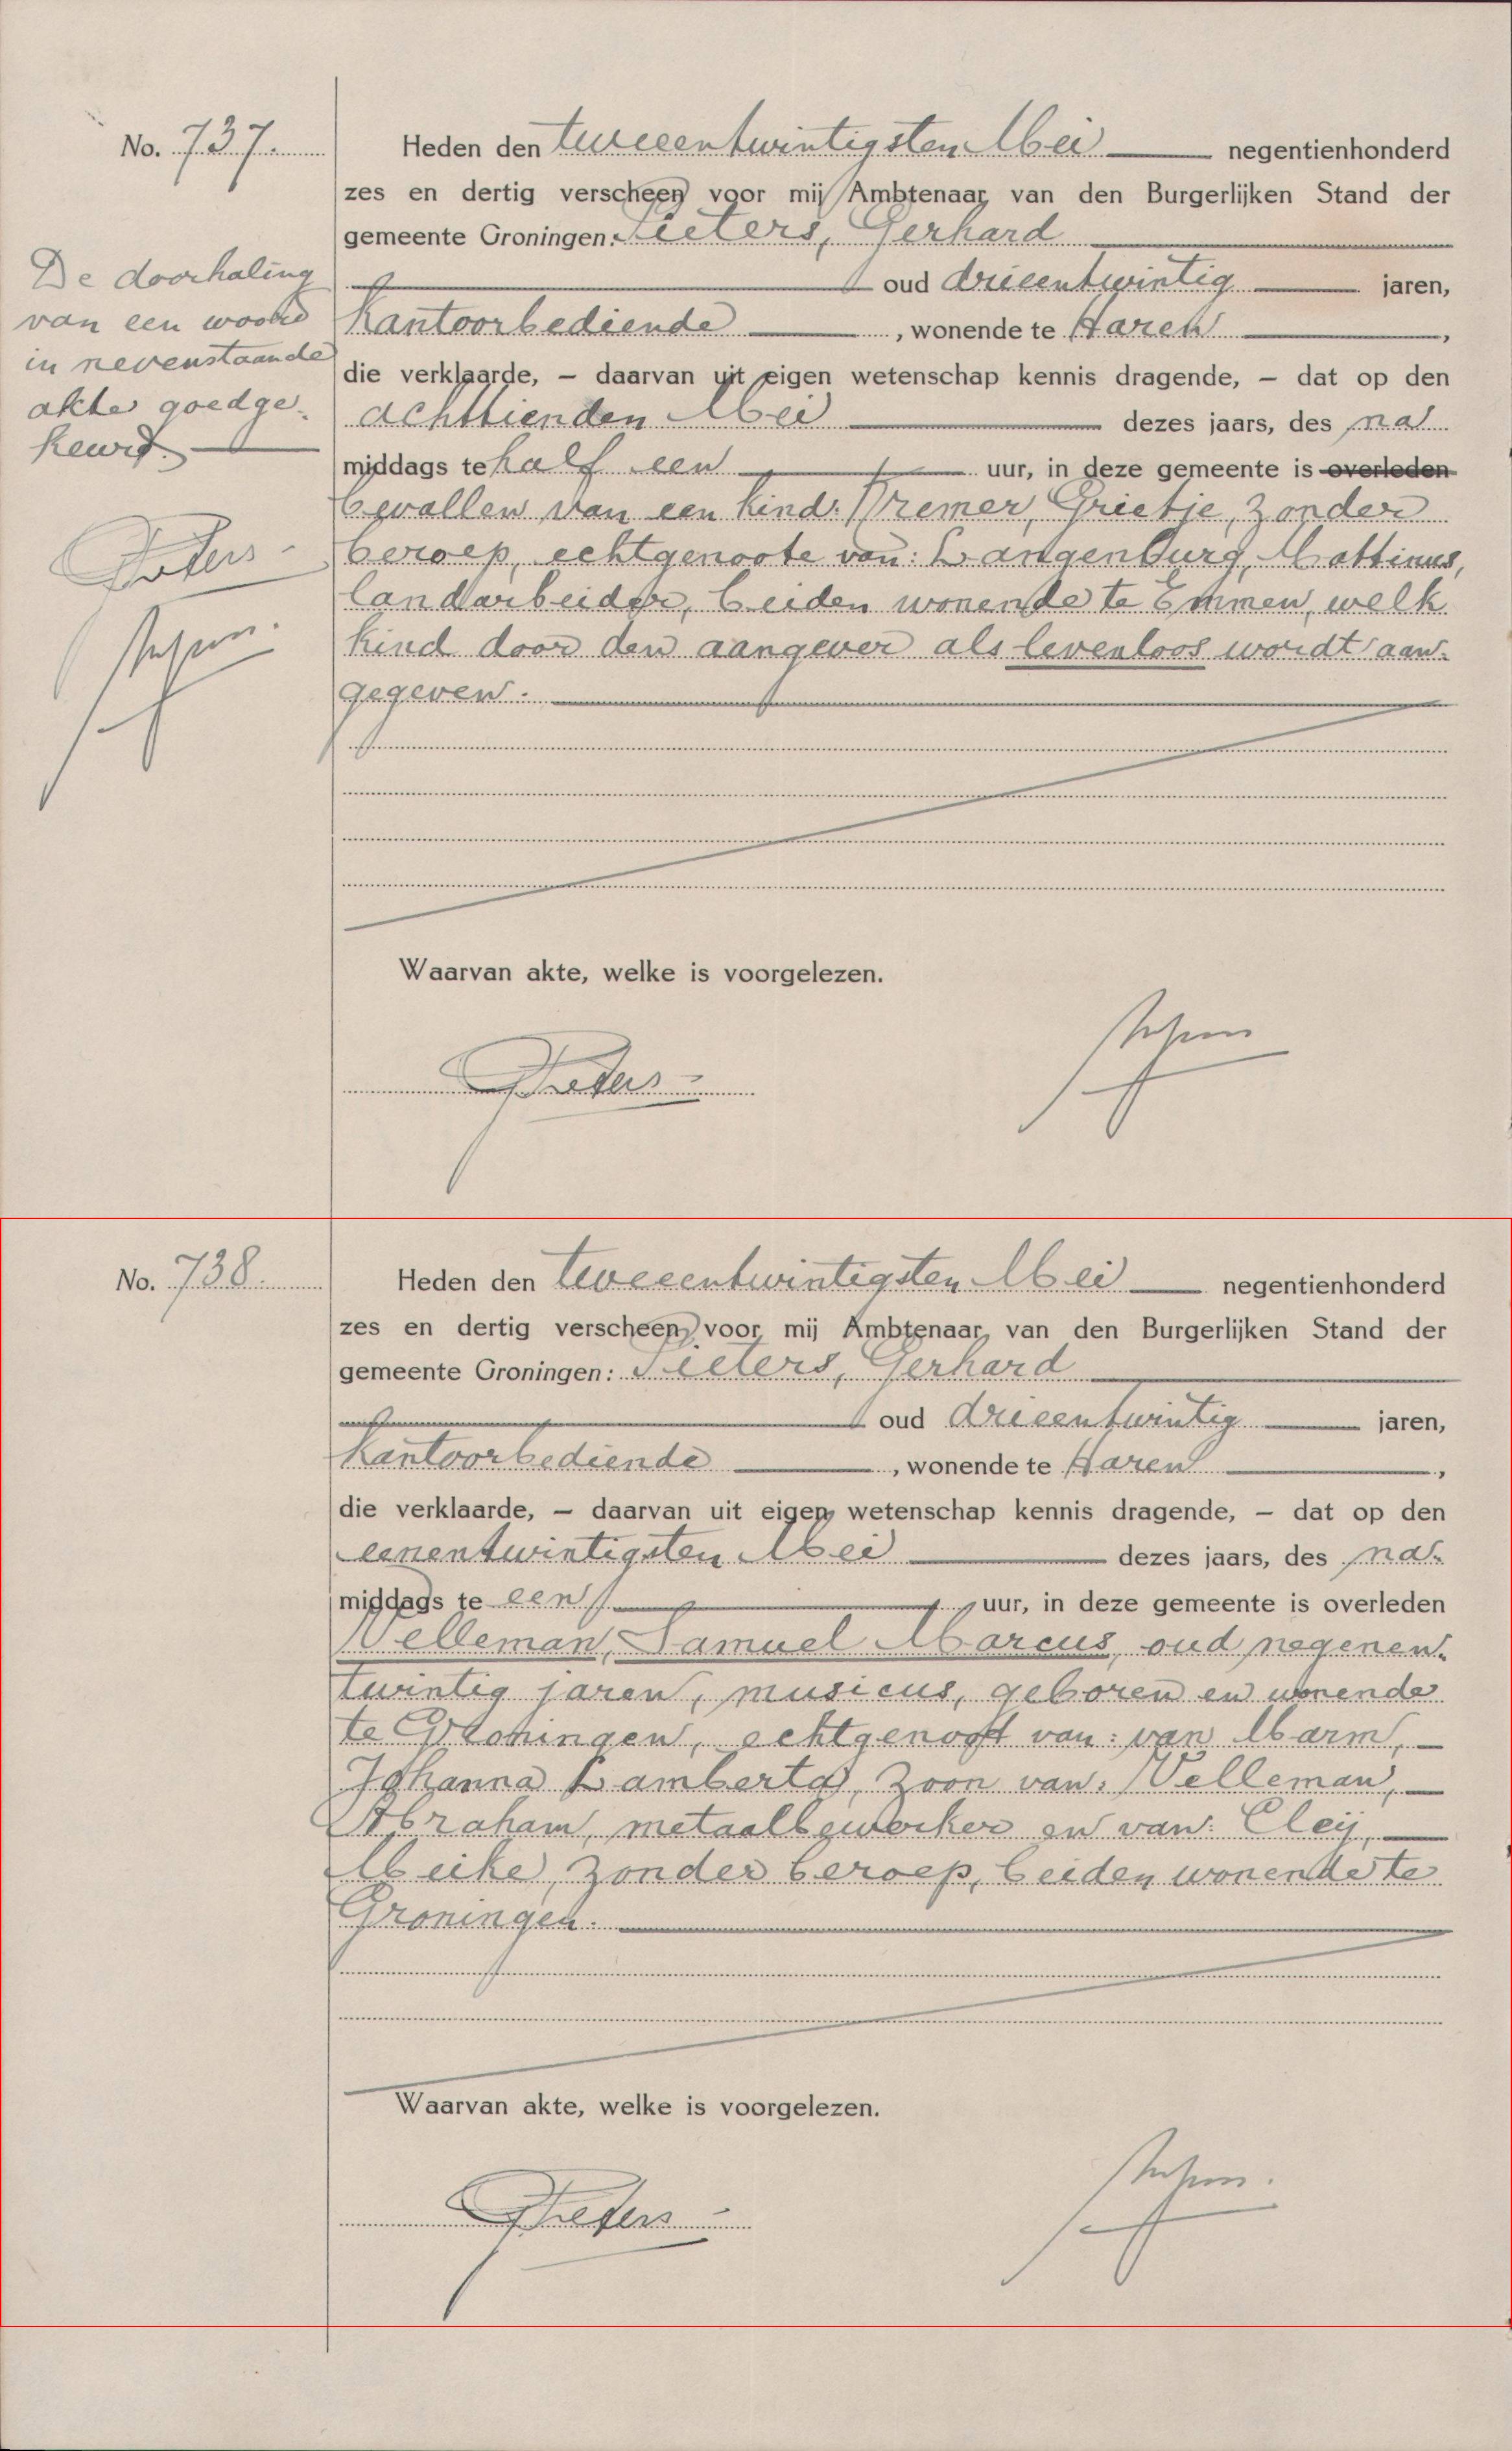 No. 737
Heden den tweeentwintigsten Mei negentienhonderd
zes en dertig verscheen voor mij Ambtenaar van den Burgerlijken Stand der
gemeente Groningen: Pieters, Gerhard
oud drieentwintig jaren,
kantoorbediende, wonende te Haren,
die verklaarde, – daarvan uit eigen wetenschap kennis dragende, – dat op den
achttienden Mei dezes jaars, des na-
middags te half een uur, in deze gemeente is overleden
bevallen van een kind: Bremer, Grietje, zonder
beroep, echtgenoote van: Langenburg, Mattinus,
landarbeider, beiden wonende te Emmen, welk
kind door den aangever als levenloos wordt aan-
gegeven.
De doorhaling
van een woord
in nevenstaande
akte goedge-
keurd.
Pieters
Waarvan akte, welke is voorgelezen.
Pieters
No. 738
Heden den tweeentwintigsten Mei negentienhonderd
zes en dertig verscheen voor mij Ambtenaar van den Burgerlijken Stand der
gemeente Groningen: Pieters, Gerhard
oud drieentwintig jaren,
kantoorbediende, wonende te Haren,
die verklaarde, – daarvan uit eigen wetenschap kennis dragende, – dat op den
eenentwintigsten Mei dezes jaars, des na-
middags te een uur, in deze gemeente is overleden
Velleman, Samuel Marcus, oud negenen-
twintig jaren, musicus, geboren en wonende
te Groningen, echtgenoot van: van Marm,
Johanna Lamberta, zoon van: Velleman,
Abraham, metaalbewerker en van: Cleij,
Meike, zonder beroep, beiden wonende te
Groningen.
Waarvan akte, welke is voorgelezen.
Pieters